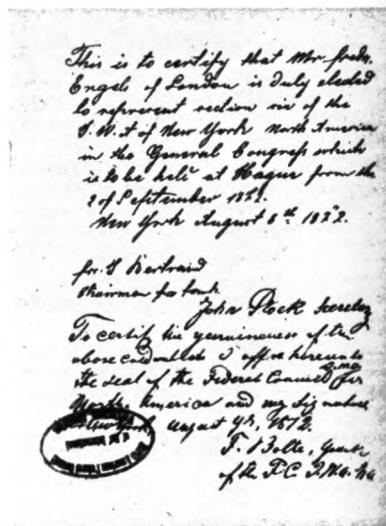 This is to certify that Mr. Fredr.
Engels of London is duly elected
to represent section six of the
I.W.A of New York North America
in the General Congress which
is to be held at Hague from the
2 of September 1872.
New York August 8th 1872.
for. S Bertrand
Chairman pro
John Plock
To certify the genuineness of the
above I affix hereunto
the seal of the Federal Council for
North America and my signature
New York August 9th, 1872.
F. Bolte,
of the F.C. I.W.A.